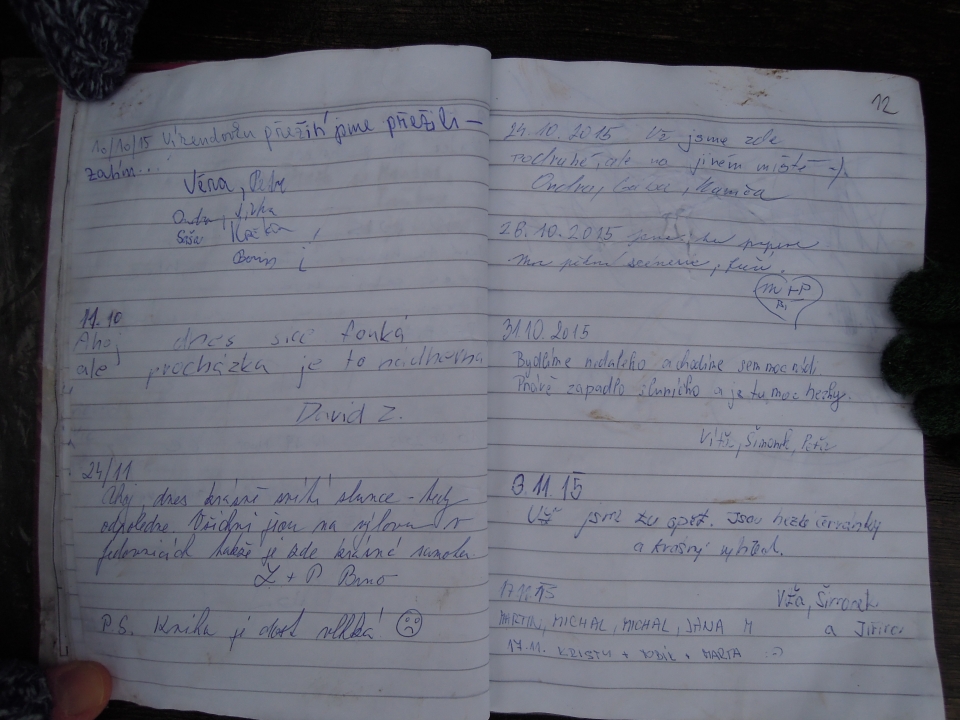 10/10/15 Víkendovku přežití jsme přežili –
zatím...
Věra, Petr
Ondra, Jirka
Saša Kačka
11.10
Ahoj dnes sice fouká
ale procházka je to nádherná
David Z.
24/11
Ahoj, dnes krásně svítí slunce – tedy
odpoledne. Všichni jsou na výlovu v
takže je zde krásná samota.
Z + P Brno
P.S. Kniha je dost vlhká! ☹
12
24.10. 2015 Už jsme zde
podruhé, ale na jiném místě :-)
Ondra,
28.10. 2015
M+P
31.10. 2015
Bydlíme nedaleko a chodíme sem moc rádi
Právě zapadlo sluníčko a je tu moc hezky.
Šimonek,
3.11.15
Už jsme tu opět. Jsou hezké červánky
a krásný výhled.
Šimonek
a
17.11.15
MARTIN, MICHAL, MICHAL, JANA M
17.11. + MARTA :-)